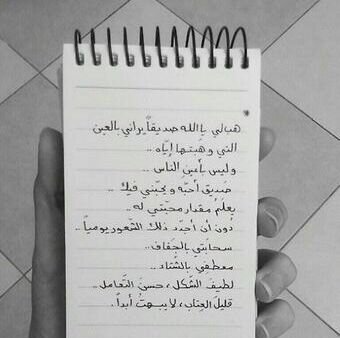 هب لي يا الله صديقاً يراني بالعين
التي وهبتها إياه ..
وليس بأعين الناس ..
صديق أحبّه و يحبّني فيك ..
يعلم مقدار محبّتي له ..
دُون أن أجدّد ذلك الشّعور يومياً ..
سحابتي بالجفاف ..
معطفي بالشّتاء ..
لطيف الشّكل ، حسن التّعامل ..
قليل العِتاب ، لا يبهتُ أبداً .